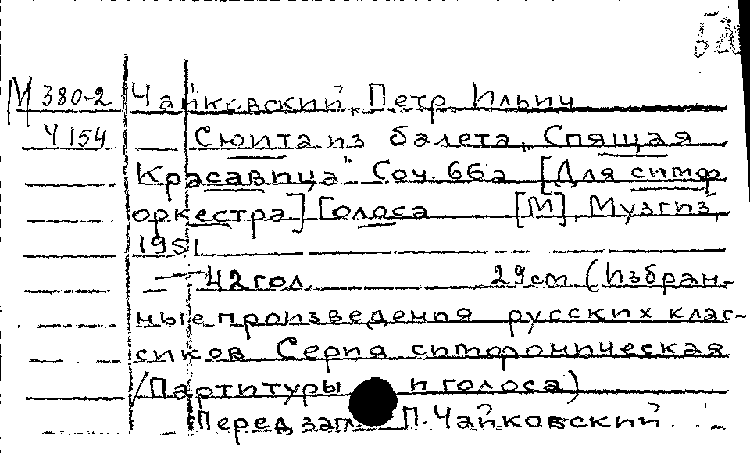 М 380-2 Чайковский, Петр Ильич
Ч 154 Сюита из балета „Спящая
Красавица" Соч. 66а [Для симф.
оркестра] Голоса [М], Музгиз,
1951
42 гол. 29 cm (Избран-
ные произведения русских клас-
сиков Серия симфоническая
/Партитуры и голоса)
Перед загл. П. Чайковский